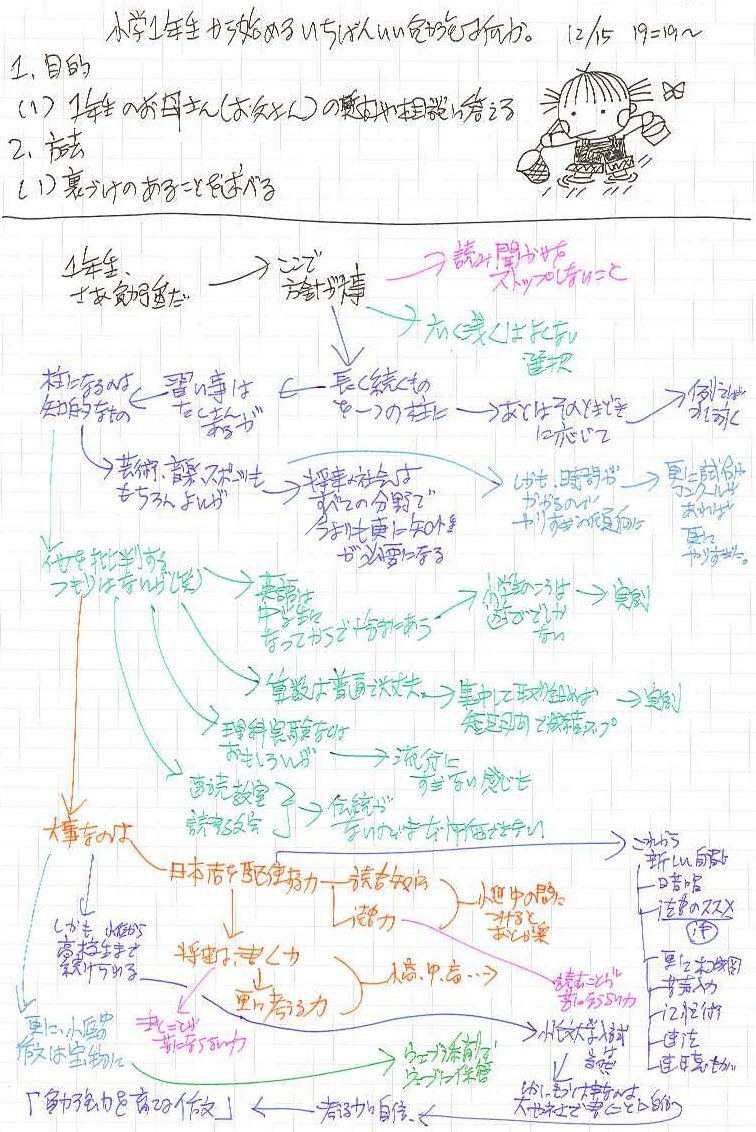 小学1年生から始めるいちばんいい勉強は何か。 12/15 19=19～
1、目的
(1) 1年生のお母さん(お父さん)の質問や相談に答える
2、方法
(1) 裏づけのあることを述べる
1年生、
さあ勉強だ
ここで
方針が大事
読み聞かせを
ストップしないこと
広く浅くはよくない
選択
柱になるのは
知的なもの
習い事は
たくさん
あるが
長く続くもの
を一つの柱に
あとはそのときどき
に応じて
例えば
芸術、音楽、スポーツも
もちろんよいが
将来の社会は
すべての分野で
今よりも更に知的
が必要になる
しかも、時間が
かかるので
やりすぎの傾向に
更に試合や
コンクールが
あれば
更に
やりすぎに。
他を批判する
つもりはないが(笑)
英語は
中学生に
なってからで十分まにあう
小学生のころは
遊びでしか
ない
実例
算数は普通で大丈夫
集中して取り組めば
短期間で成績アップ
実例
理科実験などは
おもしろいが
流行に
すぎない感じも
速読教室
読書
伝統が
ないのでまだ評価できない
大事なのは
日本語を駆使する力
読書
読む力
小学中の間に
つけると
あとが楽
これから
新しい
暗唱
読書のススメ
更に構成図
音声入力
記憶術
速読
しかも、小1から
高校生まで
続けられる
将来は、書く力
更に考える力
小、中、高…→
読むことが
苦にならない力
書くことが
苦にならない力
更に、小学中の
作文は宝物に
ウェブに保管
小作文大学入試
しかし、更に大事なのは
大や社会で書くこと
考える力に自信、
「勉強力を育てる作文」